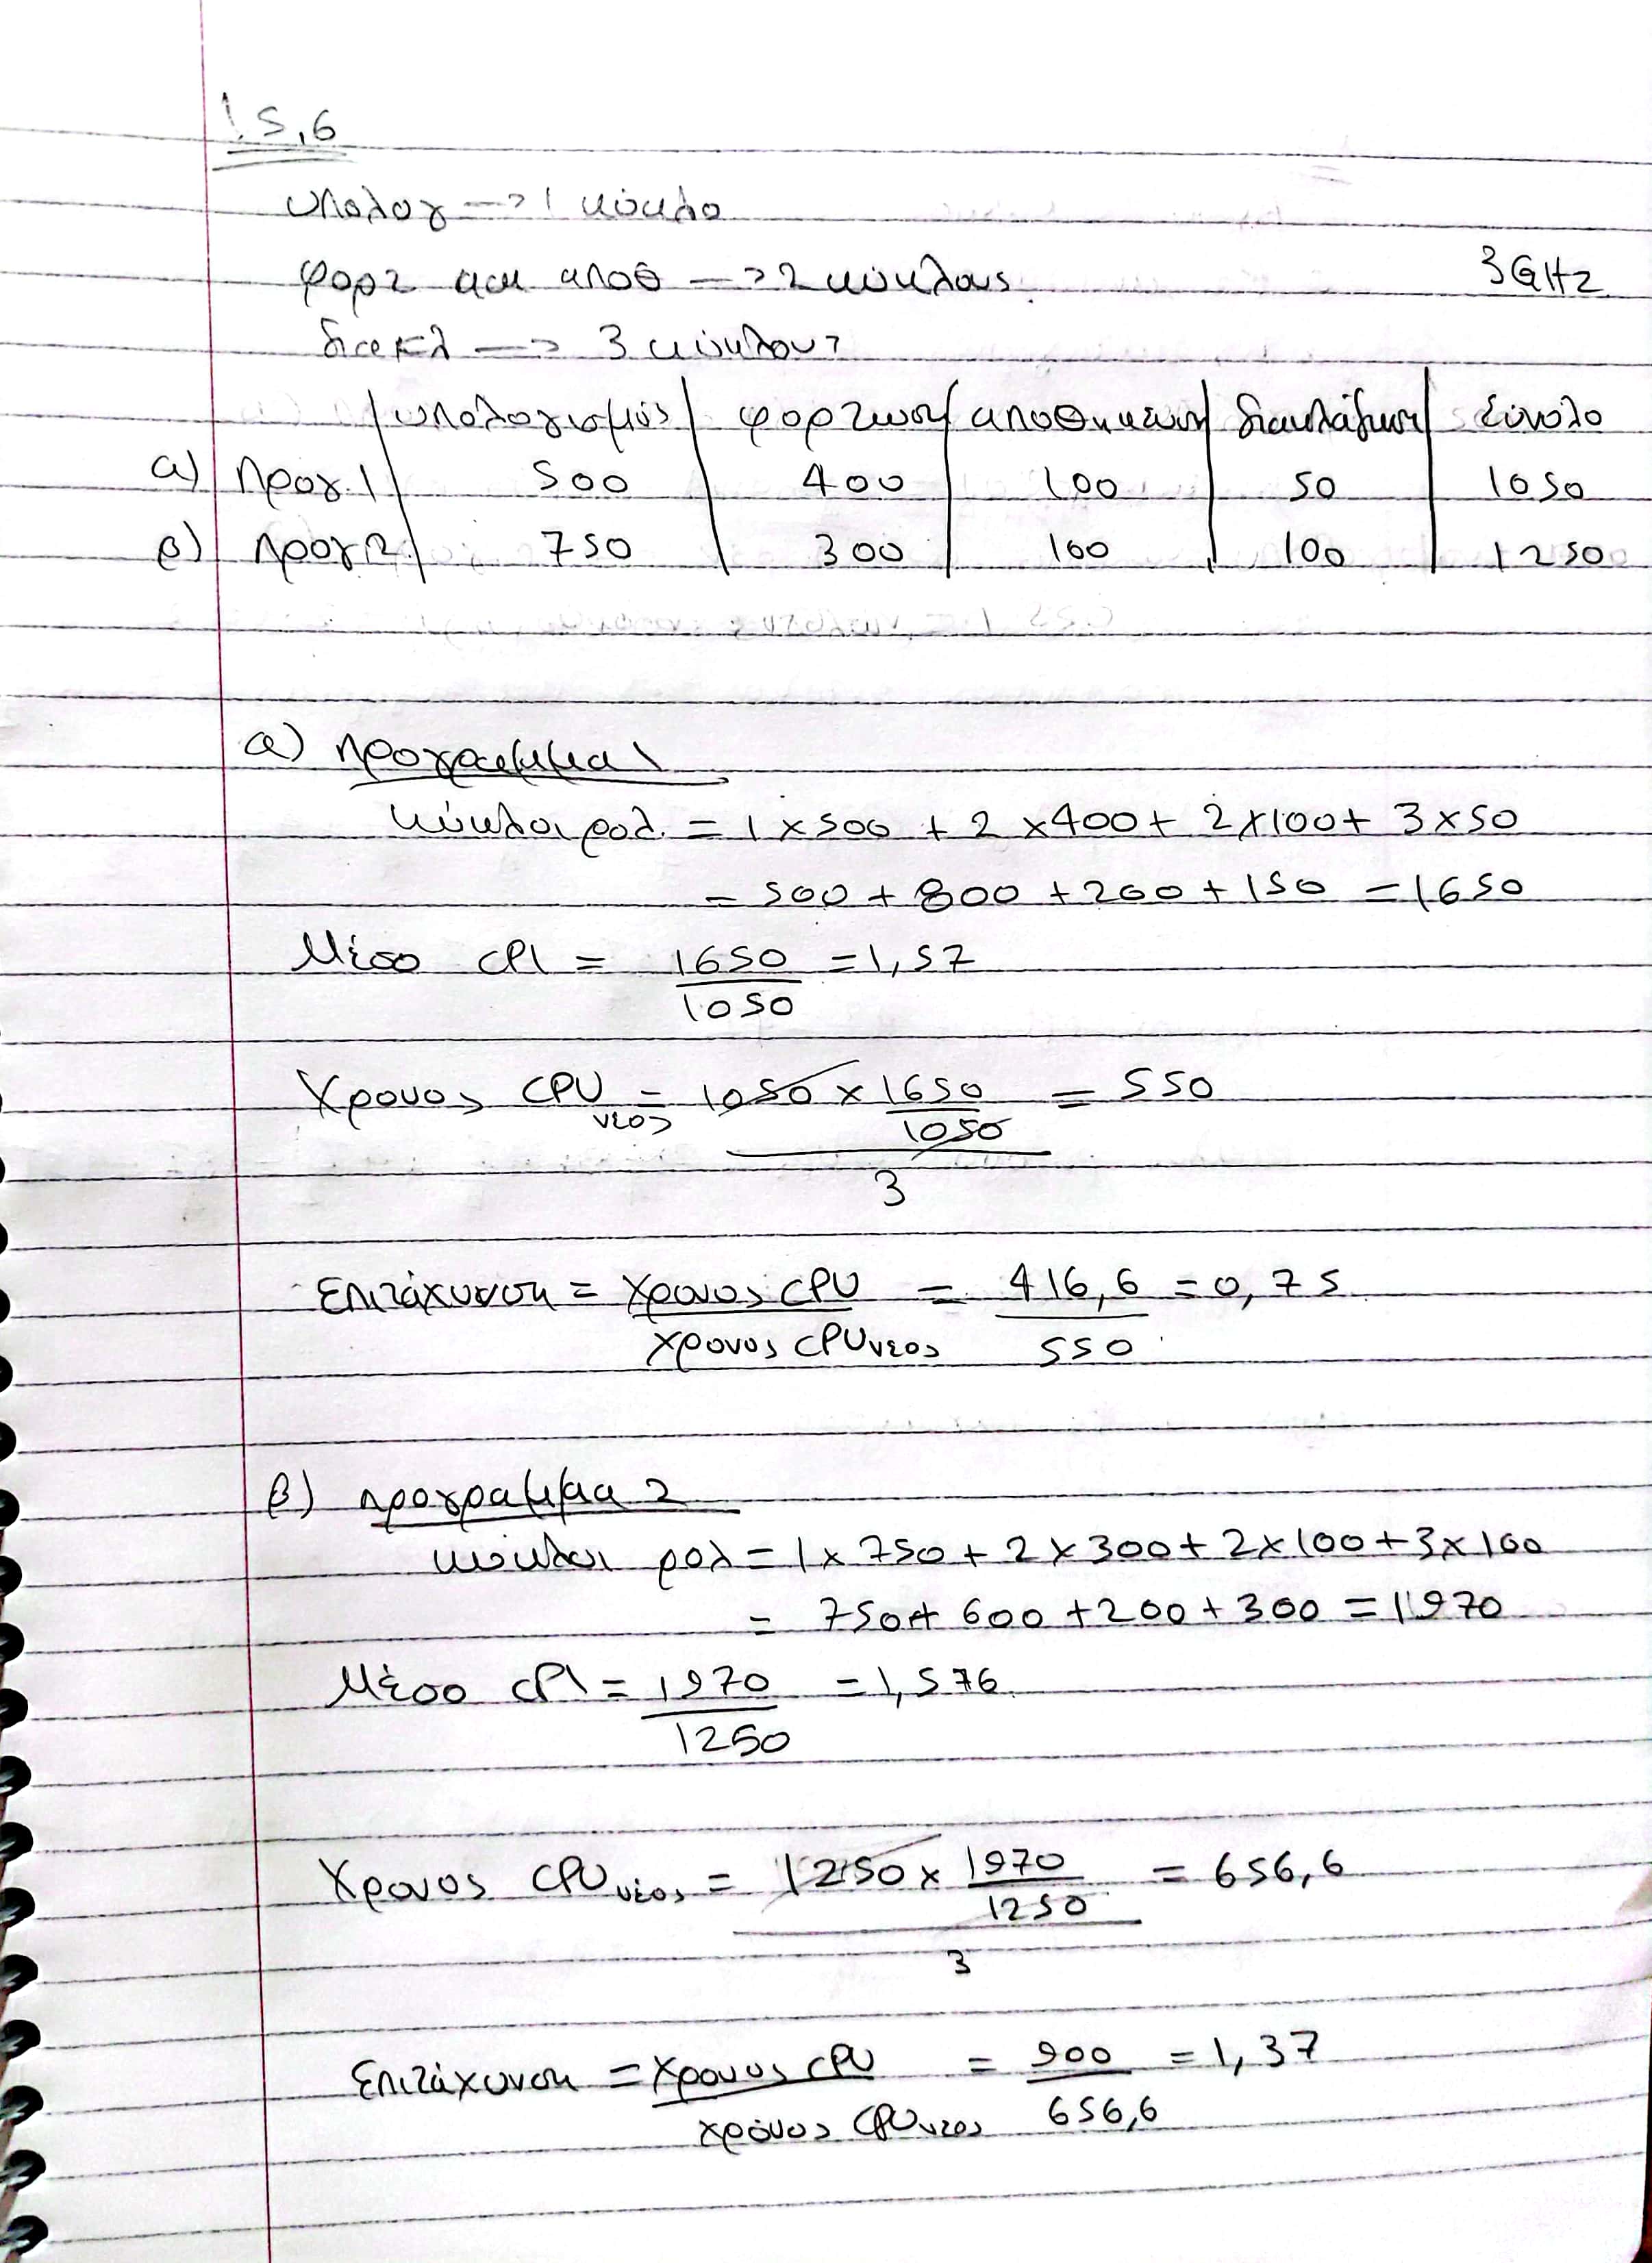 1.5,6
υπολογ --> 1 κύκλο
φορτ και αποθ --> 2 κύκλους 3GHz
διακλ --> 3 κύκλους
υπολογισμός φορτωση αποθηκευση διακλάδωση Σύνολο
α) προγ.1 500 400 100 50 1050
β) προγ2. 750 300 100 100 1250
α) προγραμμα 1
κύκλοι ρολ. = 1 x 500 + 2 x 400 + 2 x 100 + 3 x 50
= 500 + 800 + 200 + 150 = 1650
Μέσο CPI = 1650/1050 = 1,57
Χρονος CPU νεος = (1050 x 1650/1050)/3 = 550
Επιτάχυνση = χρονος CPU/χρονος CPU νεος = 416,6/550 = 0,75
β) προγραμμα 2
κύκλοι ρολ = 1 x 750 + 2 x 300 + 2 x 100 + 3 x 100
= 750 + 600 + 200 + 300 = 1970
Μέσο CPI = 1970/1250 = 1,576
Χρονος CPU νέος = (1250 x 1970/1250)/3 = 656,6
Επιτάχυνση = χρονος CPU/χρόνος CPU νεος = 900/656,6 = 1,37